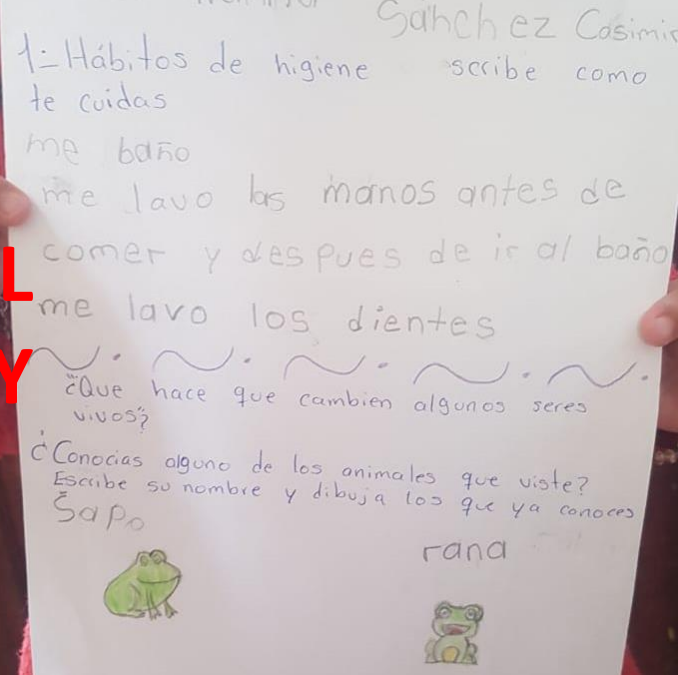 Sanchez Cosimir
1= Hábitos de higiene scribe como
te cuidas
me baño
me lavo las manos antes de
comer y despues de ir al baño
L
me lavo los dientes
Y
¿Que hace que cambien algunos seres
vivos?
¿Conocias alguno de los animales que viste?
Escribe su nombre y dibuja los que ya conoces
Sapo
rana